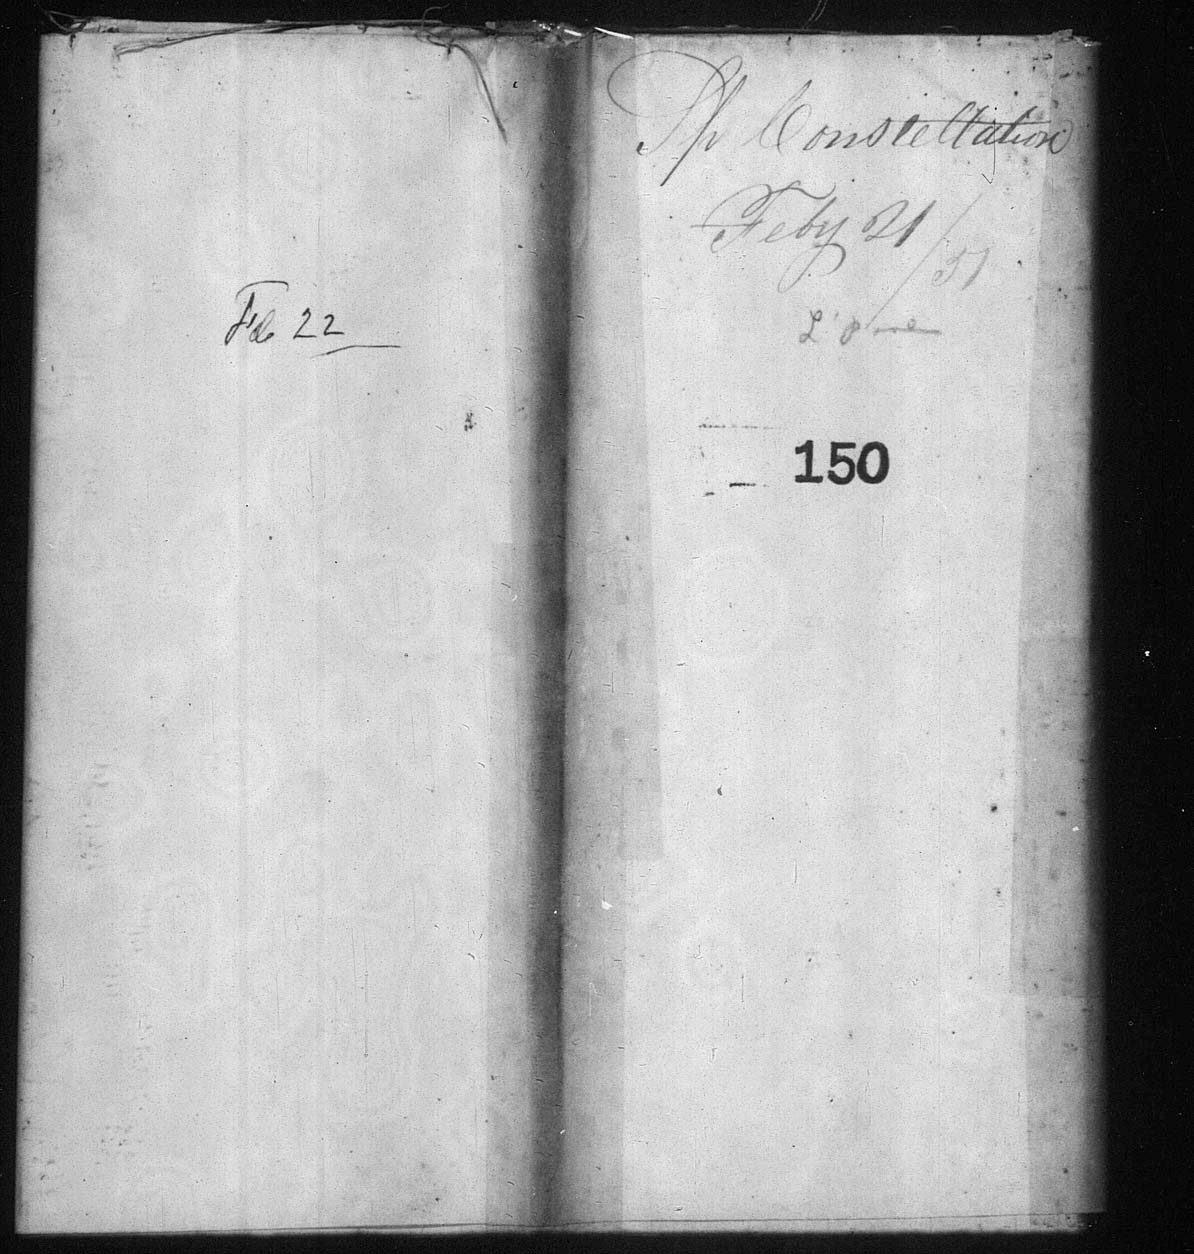 Fe 22
Sh Constellation
Feby 21/51
L'pool
150